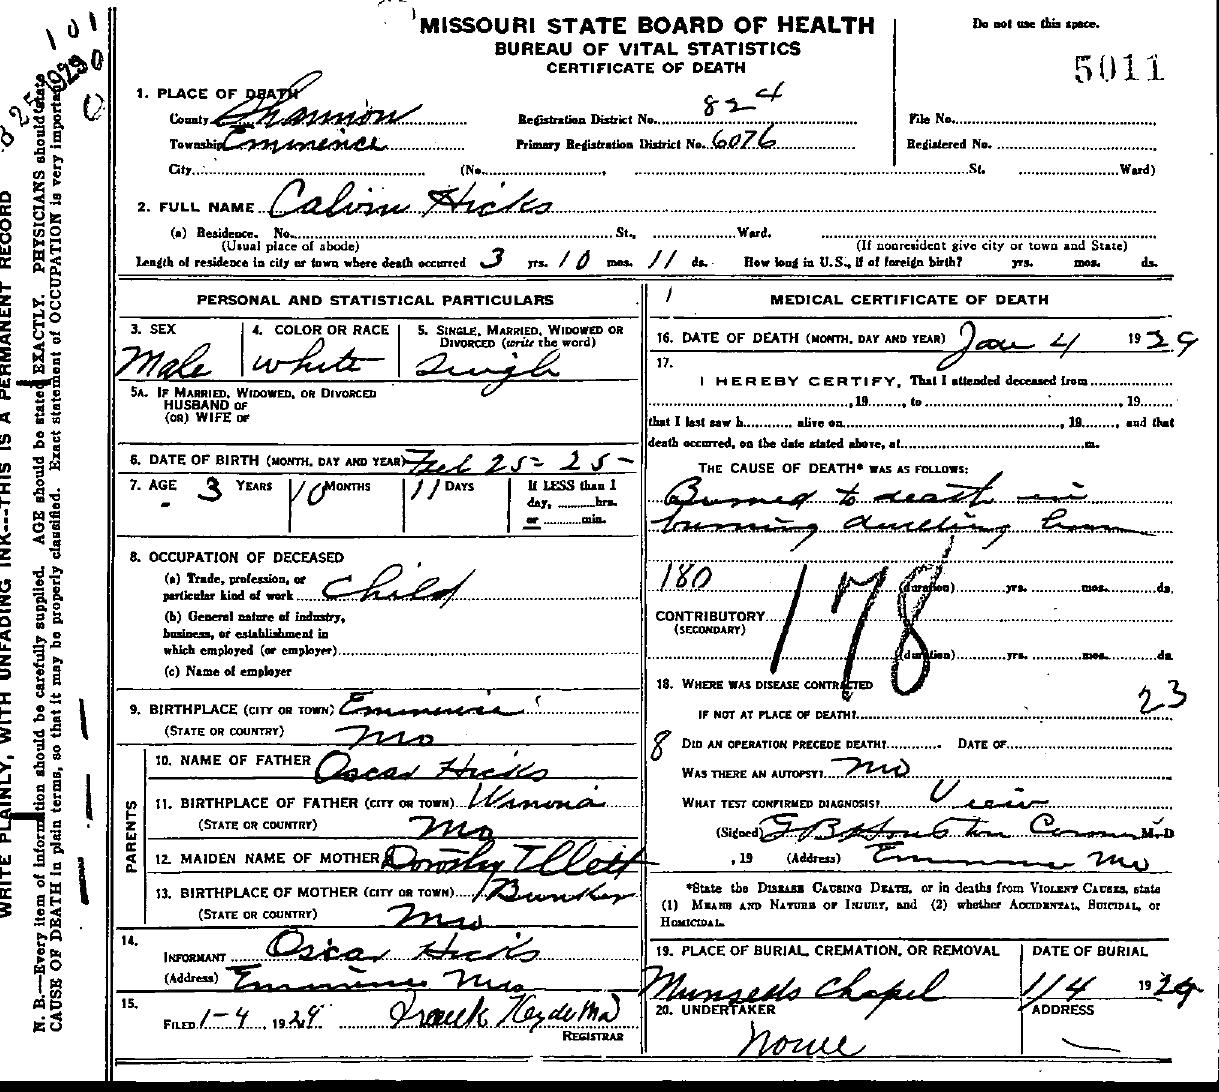 MISSOURI STATE BOARD OF HEALTH
BUREAU OF VITAL STATISTICS
CERTIFICATE OF DEATH
Do not use this space.
5011
1. PLACE OF DEATH
County Shannon Registration District No. 824 File No.
Township Eminence Primary Registration District No. 6076 Registered No.
City (No. St. Ward)
2. FULL NAME Calvin Hicks
(a) Residence. No. St., Ward.
(Usual place of abode) (If nonresident give city or town and State)
Length of residence in city or town where death occurred 3 yrs. 10 mos. 11 ds. How long in U.S., if of foreign birth? yrs. mos. ds.
PERSONAL AND STATISTICAL PARTICULARS
3. SEX 4. COLOR OR RACE 5. SINGLE, MARRIED, WIDOWED OR DIVORCED (write the word)
Male White Single
5A. IF MARRIED, WIDOWED, OR DIVORCED
HUSBAND OF
(OR) WIFE OF
6. DATE OF BIRTH (MONTH, DAY AND YEAR) Feb 25 - 25 -
7. AGE 3 YEARS 10 MONTHS 11 DAYS If LESS than 1 day, hrs. or min.
8. OCCUPATION OF DECEASED
(a) Trade, profession, or
particular kind of work Child
(b) General nature of industry,
business, or establishment in
which employed (or employer)
(c) Name of employer
9. BIRTHPLACE (CITY OR TOWN) Eminence
(STATE OR COUNTRY) Mo
PARENTS
10. NAME OF FATHER Oscar Hicks
11. BIRTHPLACE OF FATHER (CITY OR TOWN) Winona
(STATE OR COUNTRY) Mo
12. MAIDEN NAME OF MOTHER Dorothy
13. BIRTHPLACE OF MOTHER (CITY OR TOWN) Bunker
(STATE OR COUNTRY) Mo
14. INFORMANT Oscar Hicks
(Address) Eminence Mo
15. FILED 1-4, 1929 Frank Hyde MD
REGISTRAR
MEDICAL CERTIFICATE OF DEATH
16. DATE OF DEATH (MONTH, DAY AND YEAR) Jan 4 1929
17.
I HEREBY CERTIFY, That I attended deceased from
, 19 , to , 19
that I last saw h alive on , 19 , and that
death occurred, on the date stated above, at m.
THE CAUSE OF DEATH* WAS AS FOLLOWS:
Burned to death in
burning dwelling
180 178 (duration) yrs. mos. ds.
CONTRIBUTORY
(SECONDARY)
(duration) yrs. mos. ds.
18. WHERE WAS DISEASE CONTRACTED
23
IF NOT AT PLACE OF DEATH?
8 DID AN OPERATION PRECEDE DEATH? DATE OF
WAS THERE AN AUTOPSY? no
WHAT TEST CONFIRMED DIAGNOSIS? View
(Signed) G B Houston Coroner M.D
, 19 (Address) Eminence Mo
*State the DISEASE CAUSING DEATH, or in deaths from VIOLENT CAUSES, state
(1) MEANS AND NATURE OF INJURY, and (2) whether ACCIDENTAL, SUICIDAL, or
HOMICIDAL.
19. PLACE OF BURIAL, CREMATION, OR REMOVAL DATE OF BURIAL
Chapel 1/4 1929
20. UNDERTAKER ADDRESS
None
WRITE PLAINLY, WITH UNFADING INK---THIS IS A PERMANENT RECORD
N. B.—Every item of information should be carefully supplied. AGE should be stated EXACTLY. PHYSICIANS should state
CAUSE OF DEATH in plain terms, so that it may be properly classified. Exact statement of OCCUPATION is very important.
101